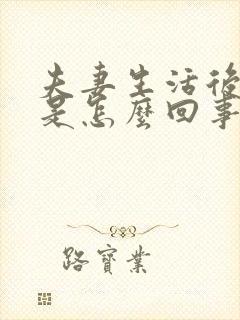 夫妻生活後
是怎麼回事
路寶業